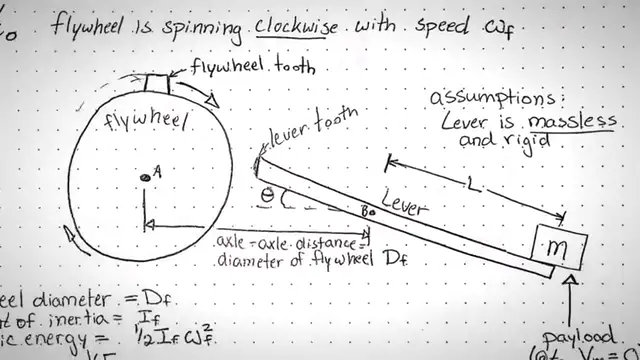 flywheel is spinning clockwise with speed ωf
flywheel tooth
flywheel
A
lever tooth
assumptions:
Lever is massless
and rigid
L
θ
B
Lever
m
axle-axle distance =
diameter of flywheel Df
diameter = Df
of inertia = If
energy = 1/2 If ωf²
payload